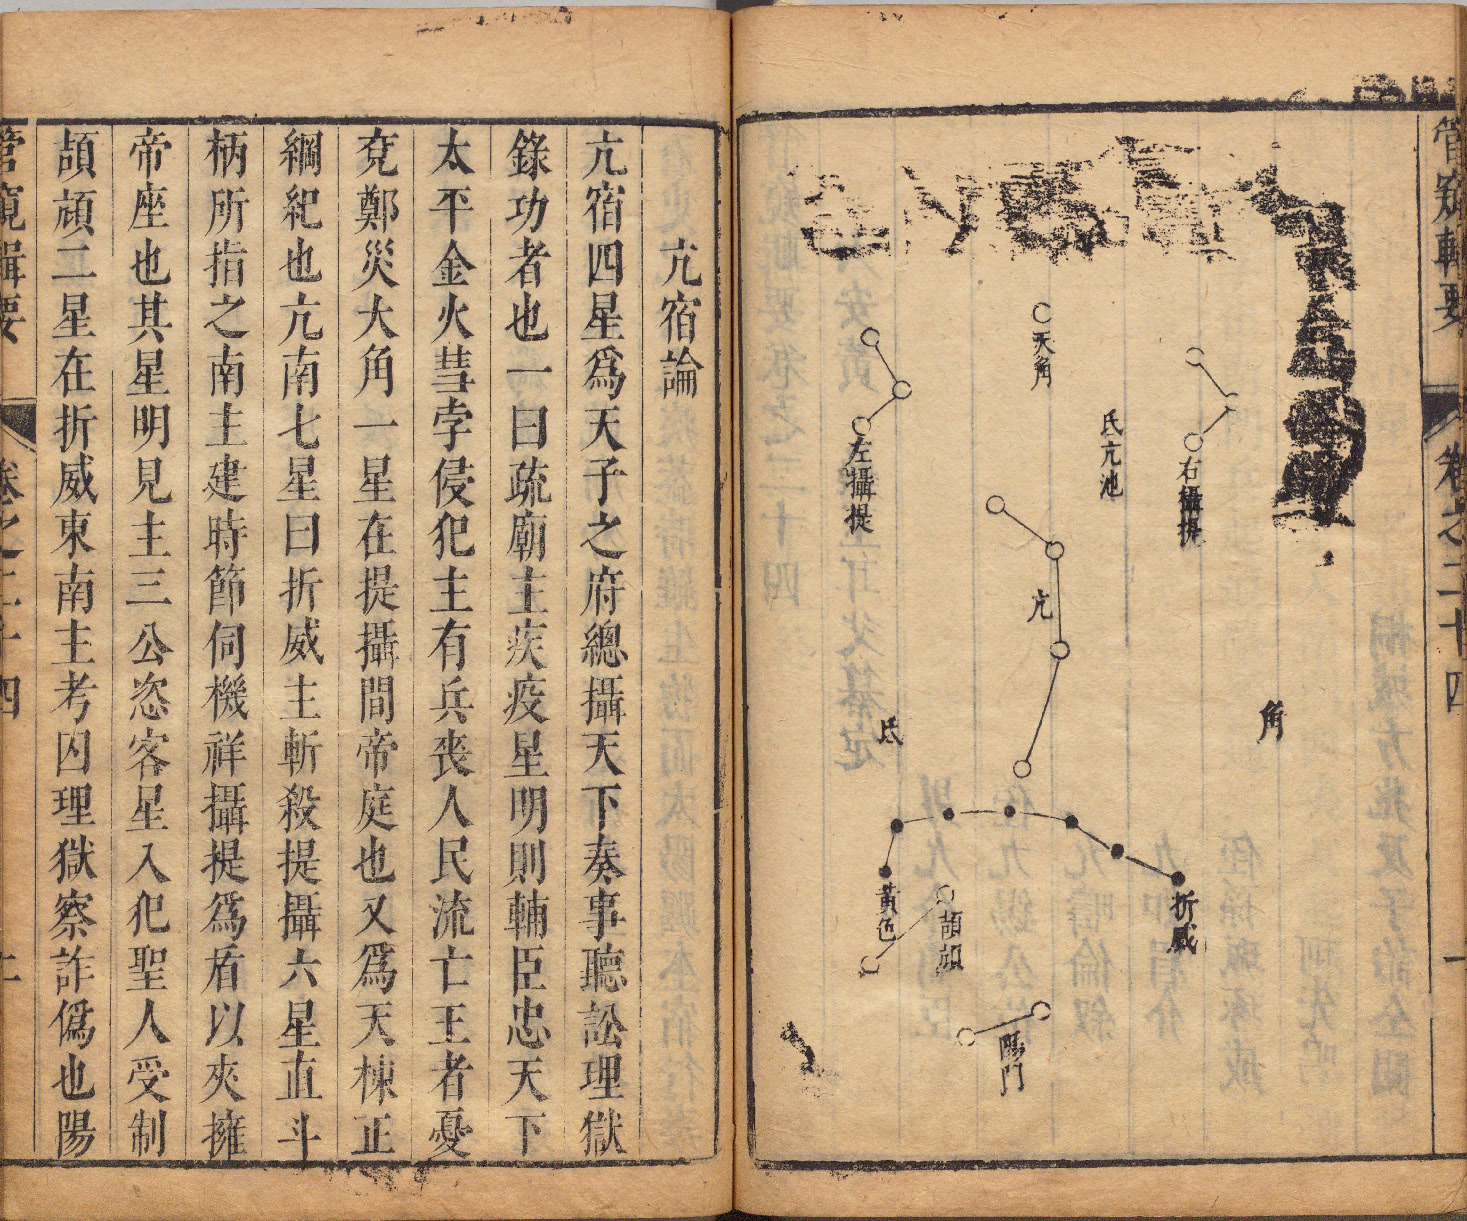 管窺輯要
卷之二十四
一
右攝提
角
氐亢池
折威
大角
亢
陽門
頡頏
左攝提
氐
黃色
亢宿論
亢宿四星爲天子之府總攝天下奏事聽訟理獄
錄功者也一曰疏廟主疾疫星明則輔臣忠天下
太平金火彗孛侵犯主有兵喪人民流亡王者憂
兗鄭災大角一星在提攝間帝庭也又爲天棟正
綱紀也亢南七星曰折威主斬殺提攝六星直斗
柄所指之南主建時節伺機祥攝提爲盾以夾擁
帝座也其星明見主三公恣客星入犯聖人受制
頡頏二星在折威東南主考囚理獄察詐僞也陽
管窺輯要
卷之二十四